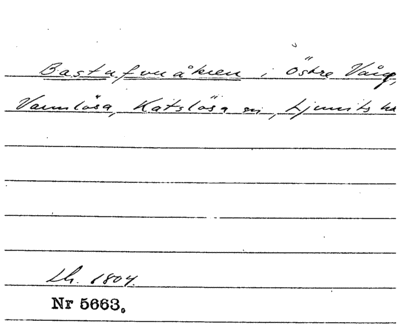 Bastufvuåkren i Östre Vång,
Vannlösa, Katslösa sn, Ljunits hd
Lh. 1804.
Nr 5663.